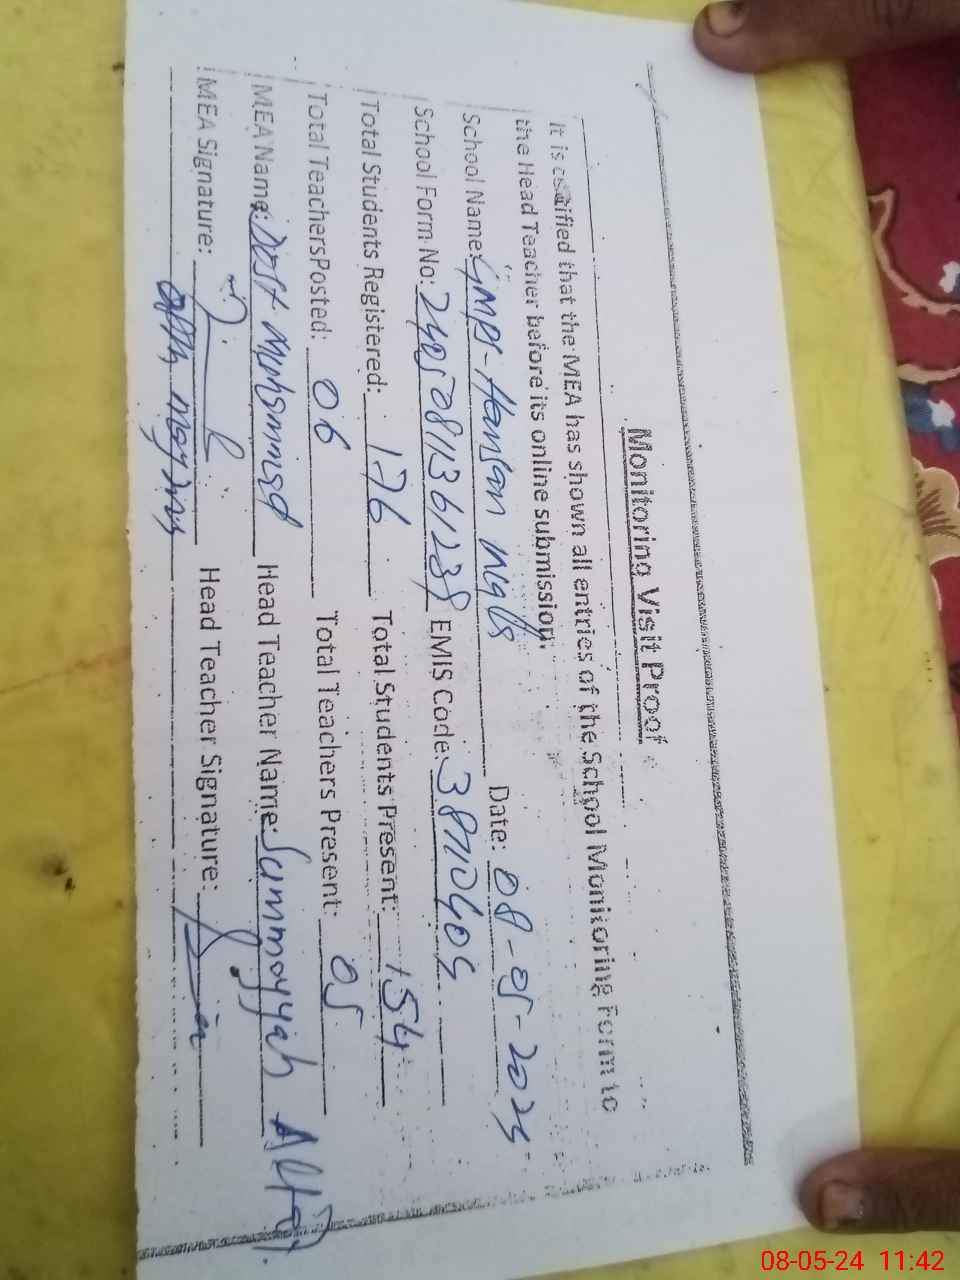 Monitoring Visit Proof
It is certified that the MEA has shown all entries of the School Monitoring Form to
the Head Teacher before its online submission.
School Name: GMPS-Hansan Date: 08-05-2024
School Form No: EMIS Code:
Total Students Registered: 176 Total Students Present: 154
Total Teachers Posted: 06 Total Teachers Present: 05
MEA Name: Dost Muhammad Head Teacher Name: Summayyah Altaf
MEA Signature: Head Teacher Signature:
08-05-24 11:42